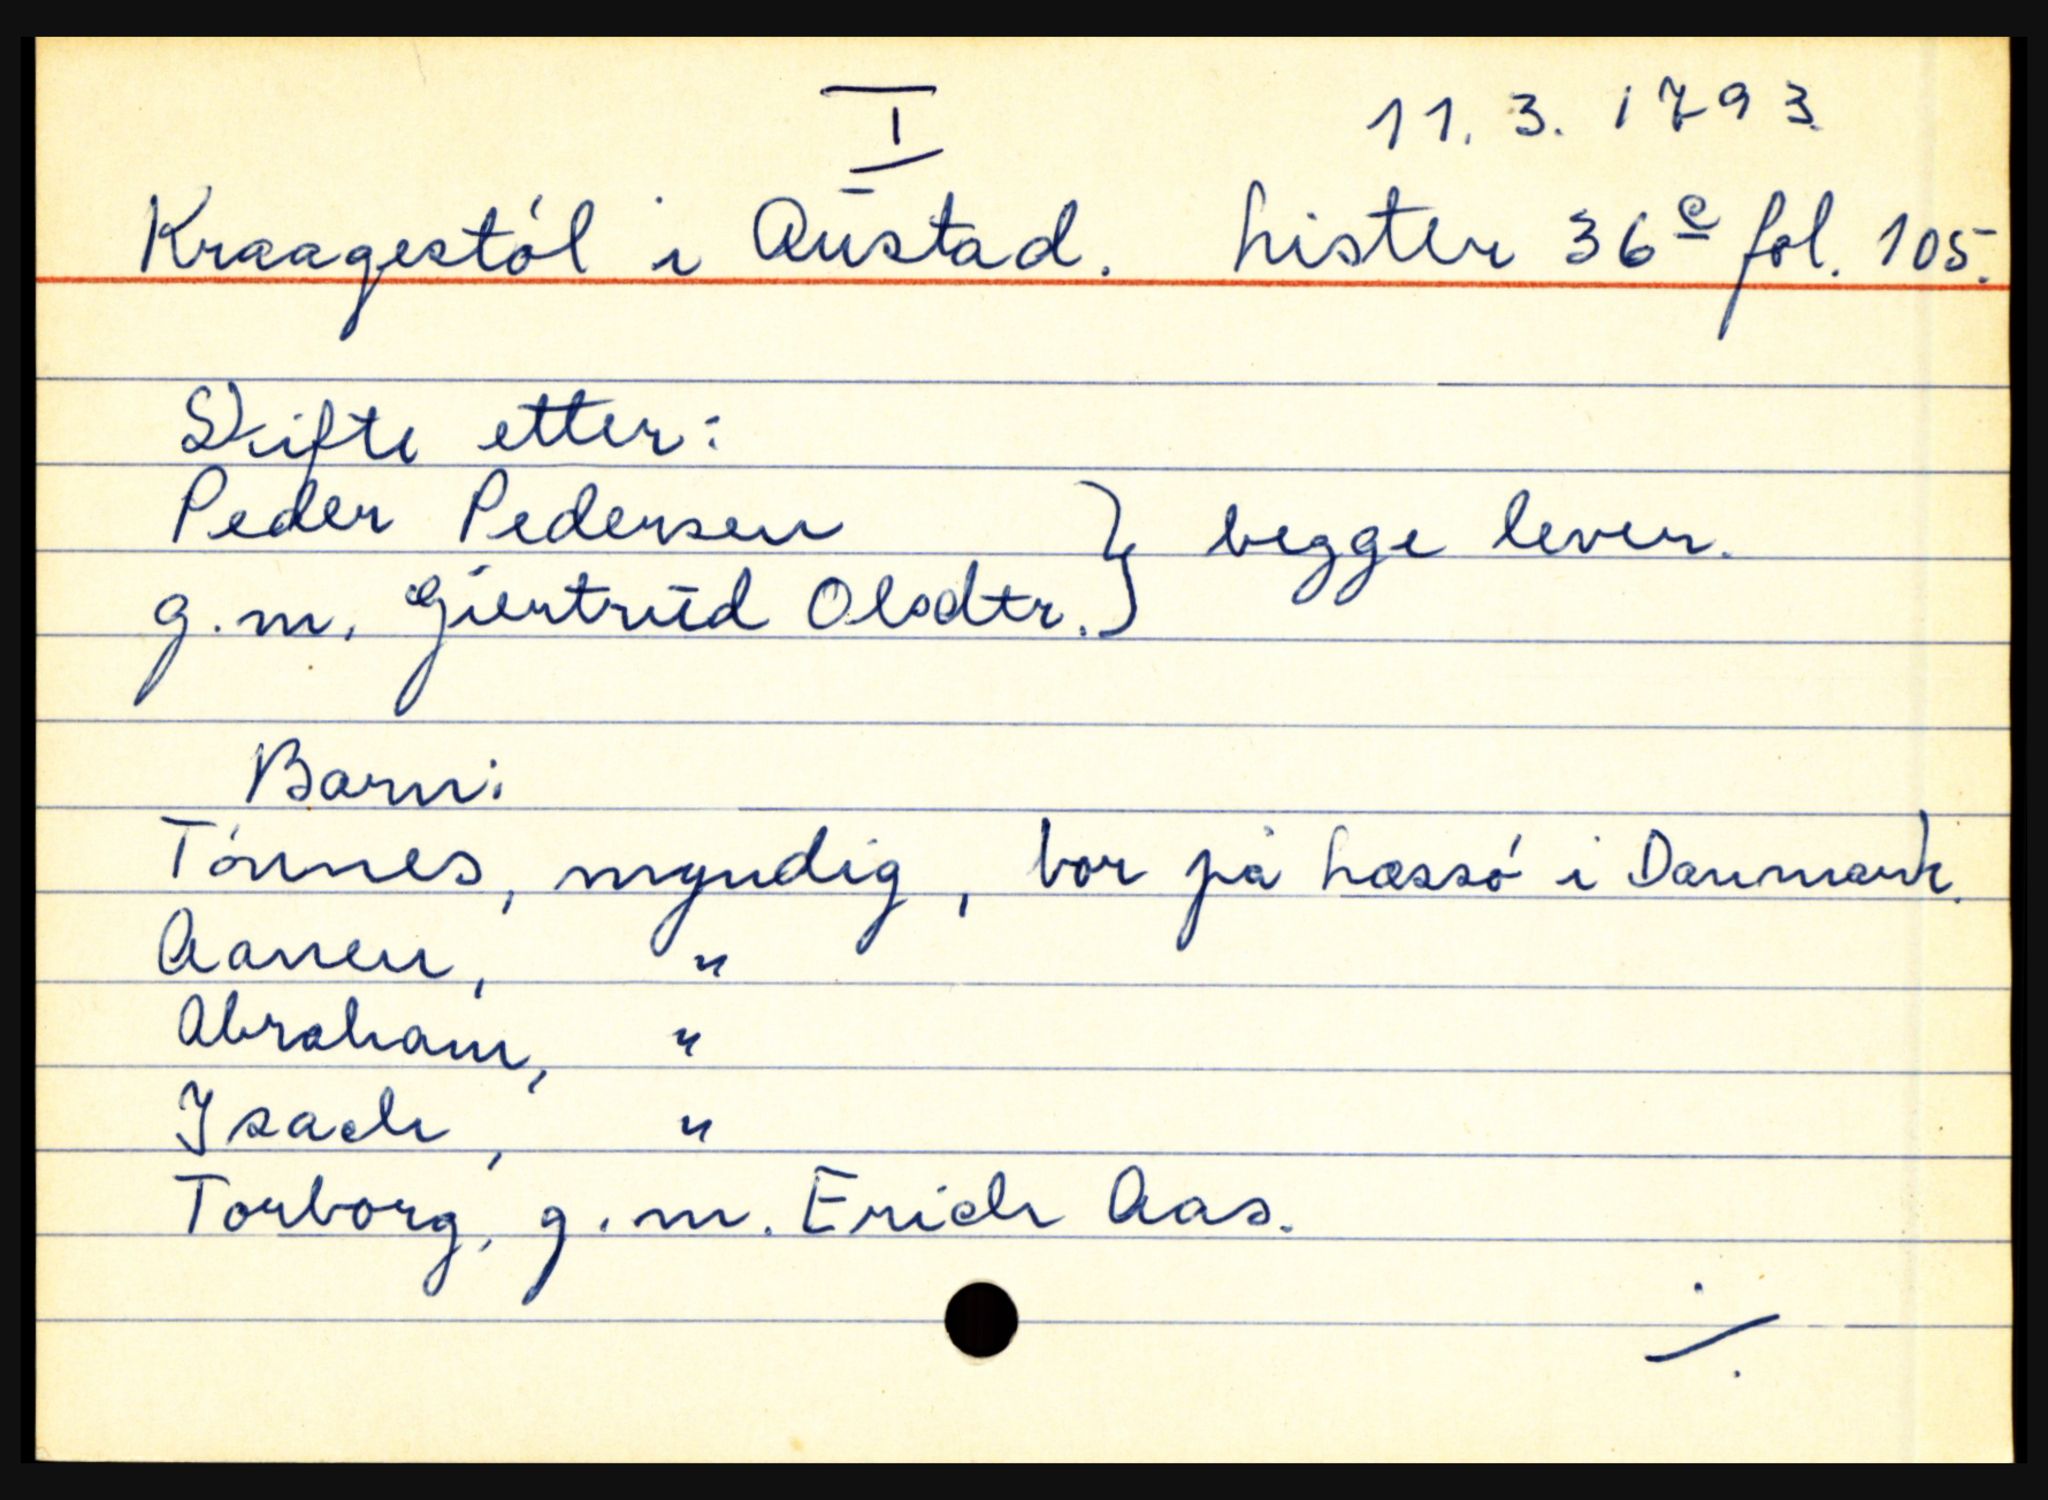 I
11. 3. 1793
Kraagestól i Austad. Lister 36c fol. 105.
Skifte etter:
Peder Pedersen } begge lever.
g.m. Giertrud Olsdtr.
Barn:
Tónnes, myndig, bor på Læssó i Danmark.
Aanen, "
Abraham, "
Isach, "
Torborg, g.m. Erich Aas.
./.